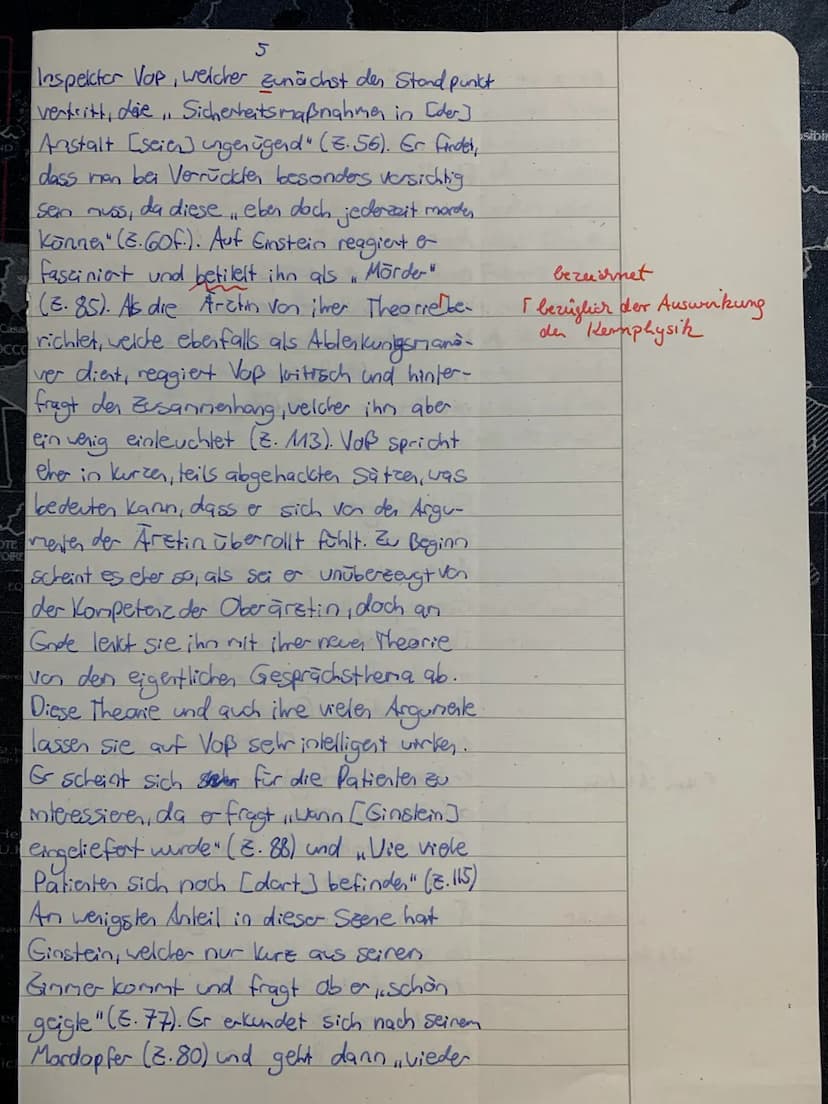 5
Inspektor Voß, welcher zunächst den Standpunkt
vertritt, die „Sicherheitsmaßnahmen in [der]
Anstalt [seien] ungenügend" (Z. 56). Er findet,
dass man bei Verrückten besonders vorsichtig
sein muss, da diese „eben doch jederzeit morden
können" (Z. 60f.). Auf Einstein reagiert er
fasciniert und betitelt ihn als „Mörder"
bezeichnet
(Z. 85). Als die Ärztin von ihrer Theorie⌈be-
⌈ bezüglich der Auswirkung
der Kernphysik
richtet, welche ebenfalls als Ablenkungsmanö-
ver dient, reagiert Voß kritisch und hinter-
fragt den Zusammenhang, welcher ihn aber
ein wenig einleuchtet (Z. 113). Voß spricht
eher in kurzen, teils abgehackten Sätzen, was
bedeuten kann, dass er sich von den Argu-
menten der Ärztin überrollt fühlt. Zu Beginn
scheint es eher so, als sei er unüberzeugt von
der Kompetenz der Oberärztin, doch am
Ende lenkt sie ihn mit ihrer neuen Theorie
von dem eigentlichen Gesprächsthema ab.
Diese Theorie und auch ihre vielen Argumente
lassen sie auf Voß sehr intelligent wirken.
Er scheint sich für die Patienten zu
interessieren, da er fragt „wann [Einstein]
eingeliefert wurde" (Z. 88) und „Wie viele
Patienten sich noch [dort] befinden" (Z. 115)
Am wenigsten Anteil in dieser Szene hat
Einstein, welcher nur kurz aus seinem
Zimmer kommt und fragt ob er „schön
geigle" (Z. 77). Er erkundet sich nach seinem
Mordopfer (Z. 80) und geht dann „wieder